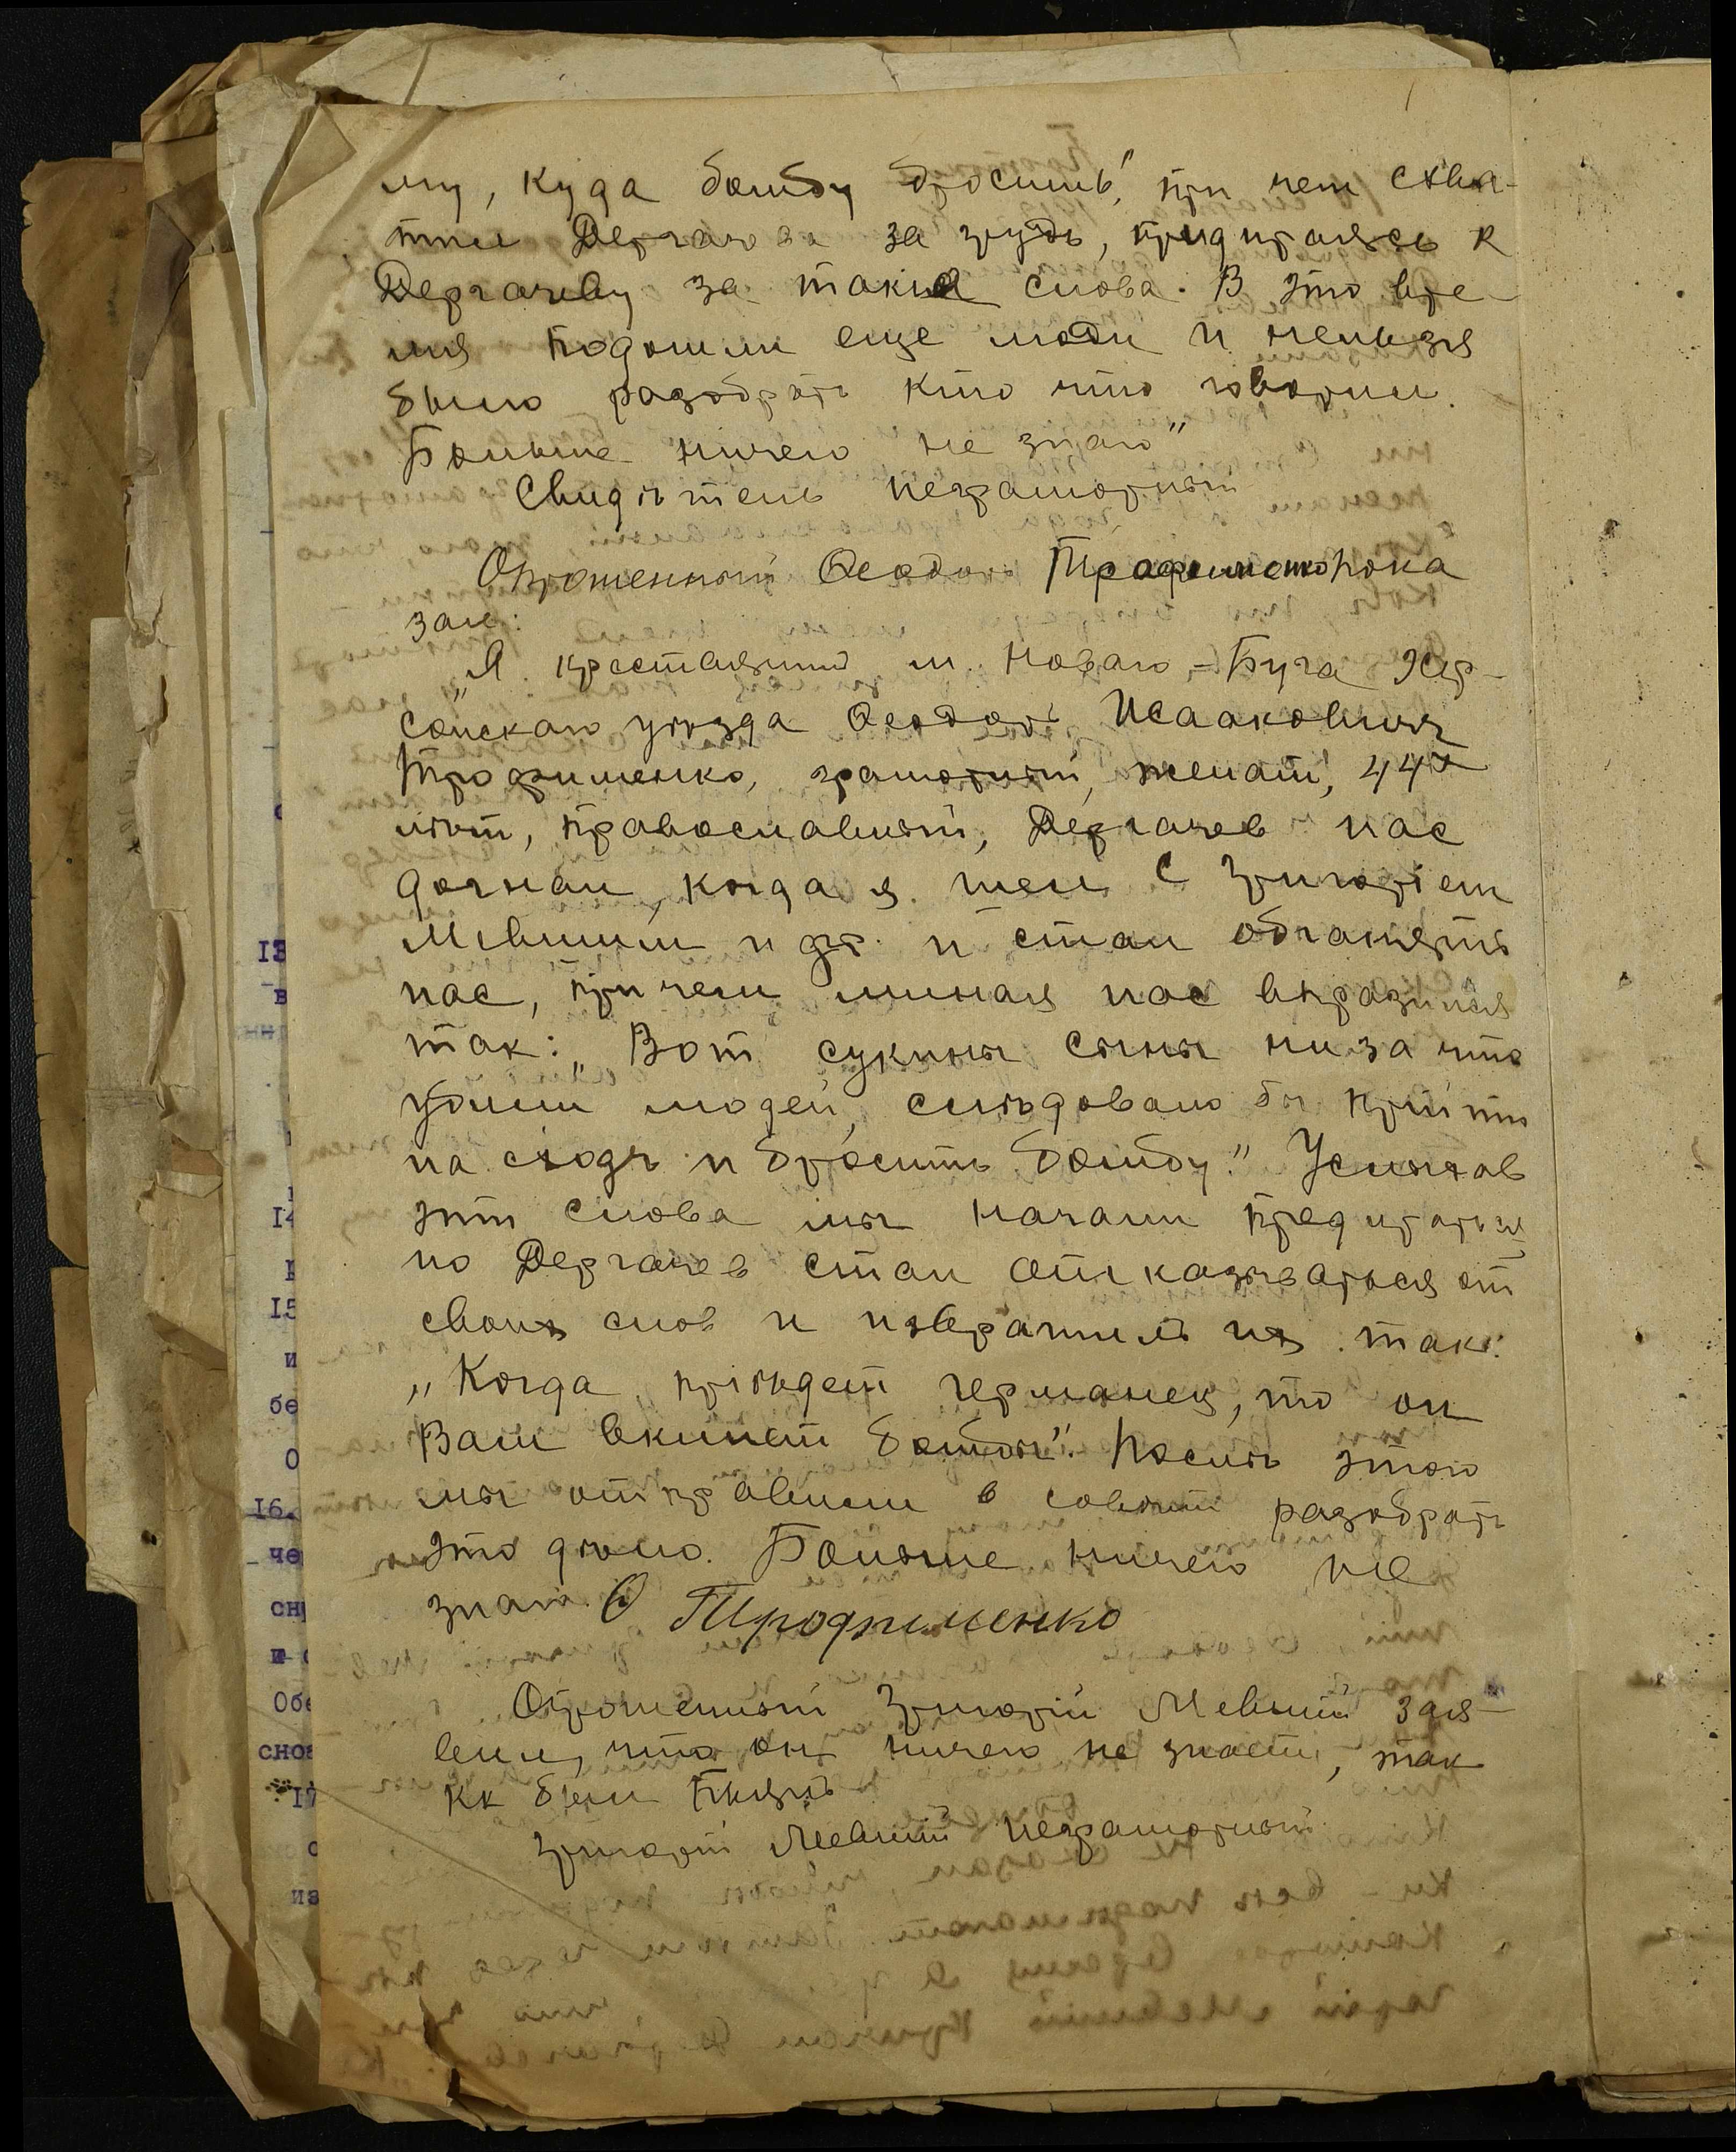 му, куда бомбу бросить", при чем схва-
тил Дергачева за грудь, придираясь к
Дергачеву за такие слова. В это вре-
мя подошли еще люди и нельзя
было разобрать кто что говорил.
Больше ничего не знаю"
Свидѣтель неграмотный
Опрошенный Ѳеодор Трофименко пока
зал:
„Я крестьянин м. Новаго-Буга Хер-
сонскаго уѣзда Ѳеодоръ Исаакович
Трофименко, грамотный, женат, 44х
лѣт, православный, Дергачев нас
догнал, когда я шел с Григоріем
Мевшим и др. и стал обганять
нас, при чем миная нас выразился
так: „Вот сукины сыны ни за что
убили людей, слѣдовало бы прийти
на сходъ и бросить бомбу." Услыхав
эти слова мы начали придираться
но Дергачев стал отказываться от
своих слов и извратилъ их так:
„Когда пріидет германец, то он
Вам вкинет бомбы". Послѣ этого
мы отправили в совѣт разобрать
это дѣло. Больше ничего не
знаю. Ѳ Трофименко
Опрошенный Григорій Мевший заяв-
вил, что он ничего не знает, так
кк был пьянъ
Григорій Мевший неграмотный
13
в
14
15
и
бе
О
16.
че
сн
Обе
снов
17
с
из